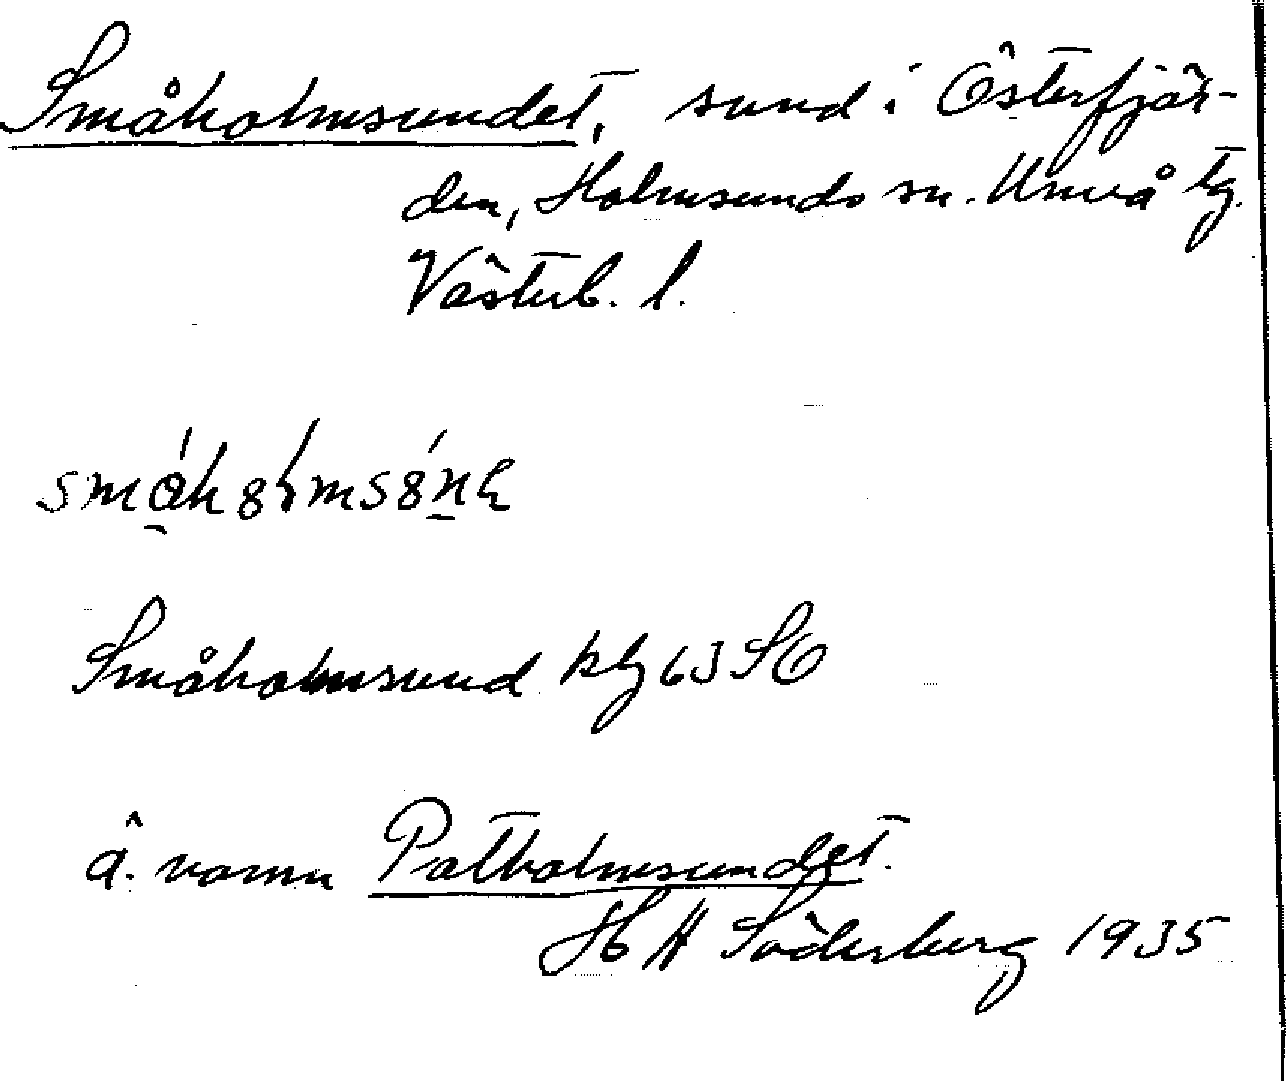 Småholmsundet, sund i Österfjär-
den, Holmsunds sn. Umeå tg.
Västerb. l.
Småholmsund kbl 63 SO
ä. namn Patholmsundet.
H H Söderberg 1935